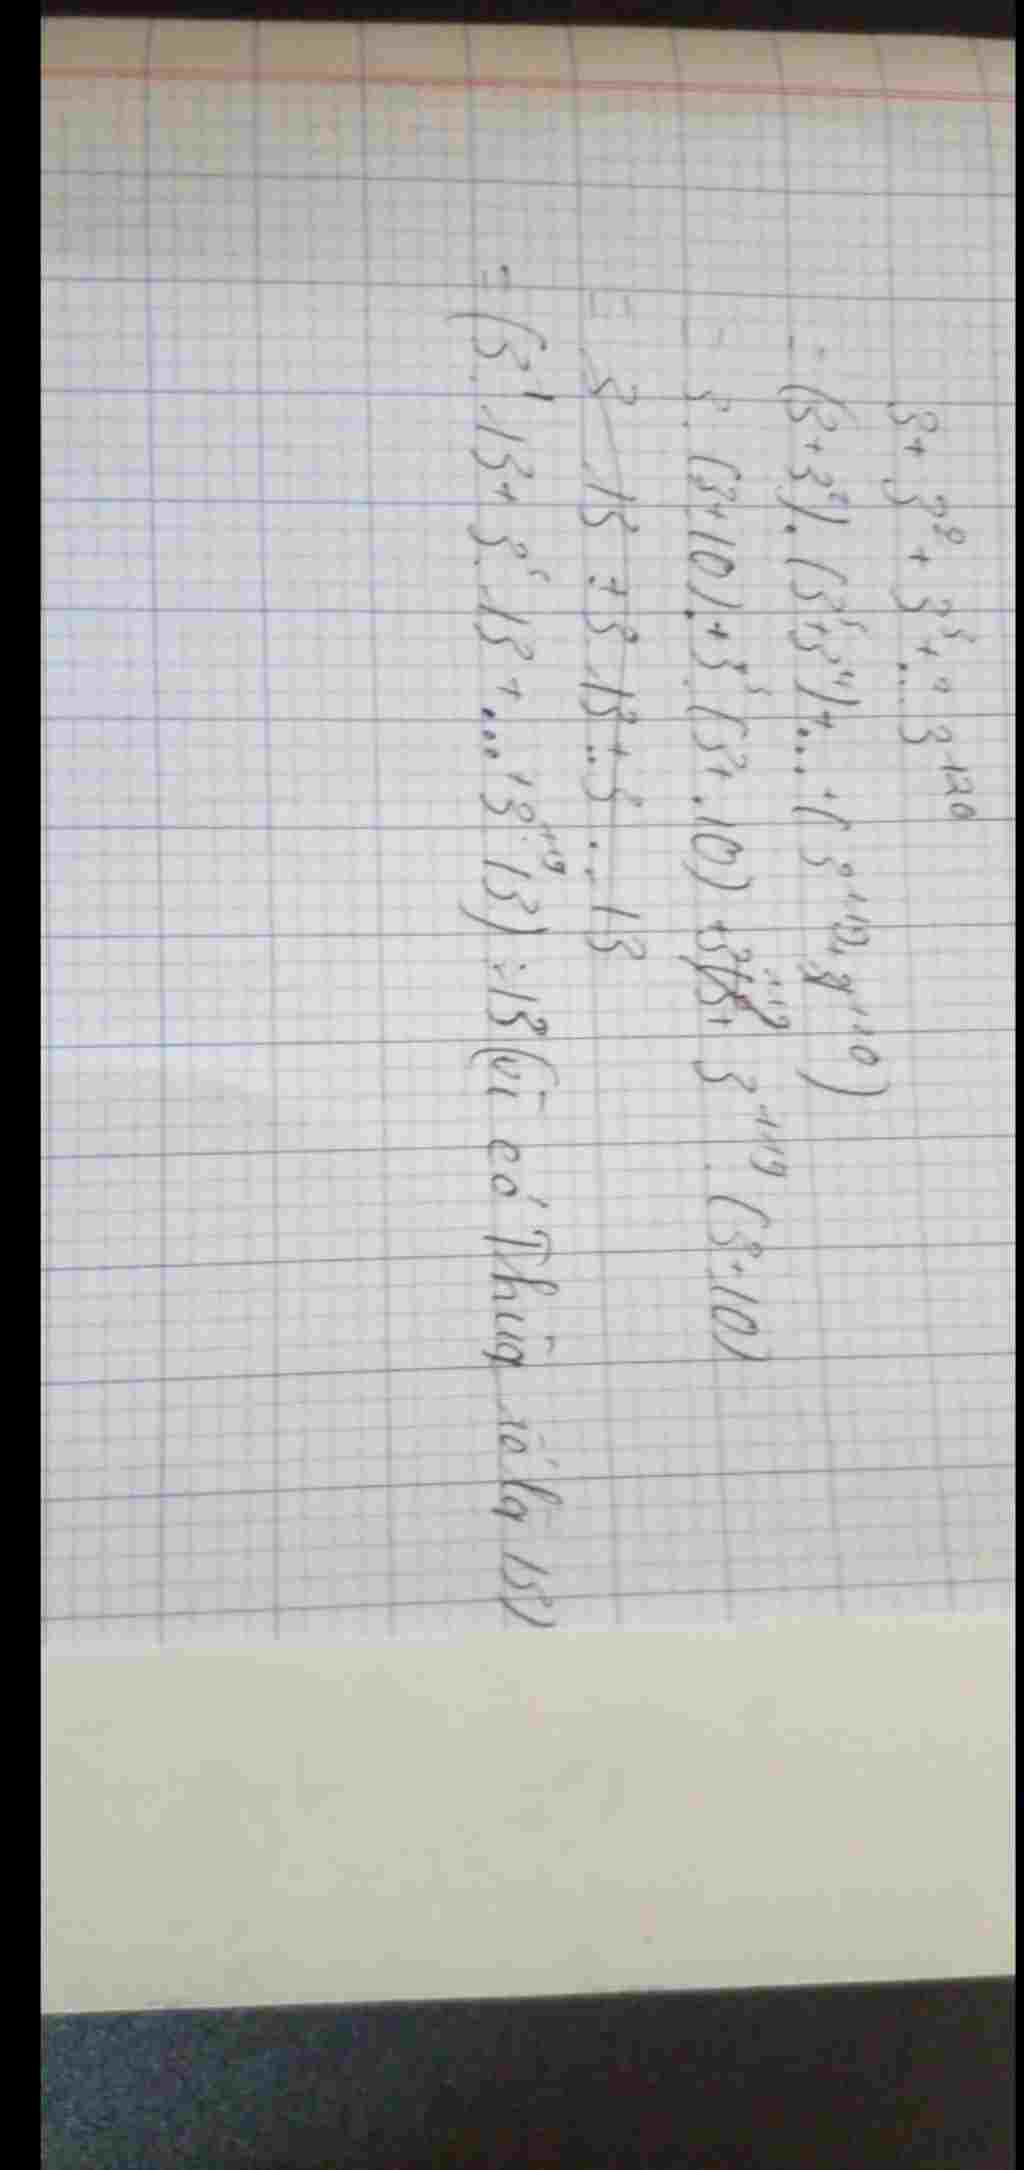 3 + 3² + 3³ + ... + 3¹²⁰
= (3 + 3²). (3³ + 3⁴) + ... + (3¹¹⁹ + 3¹²⁰)
= 3. (3 + 10) + 3³. (3 + 10) + 3¹¹⁹. (3 + 10)
= 3 . 13 + 3 . 13 + 3 ... 13
= (3¹. 13 + 3³. 13 + ... + 3¹¹⁹. 13) ⋮ 13 (vì có Thừa số là 13)